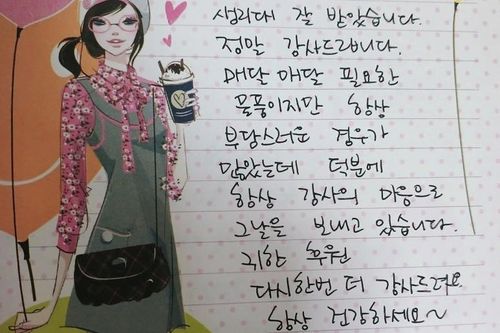 생리대 잘 받았습니다.
정말 감사드립니다.
매달 매달 필요한
물품이지만 항상
부담스러운 경우가
많았는데 덕분에
항상 감사의 마음으로
그날을 보내고 있습니다.
귀한 후원
다시한번 더 감사드려요
항상 건강하세요~